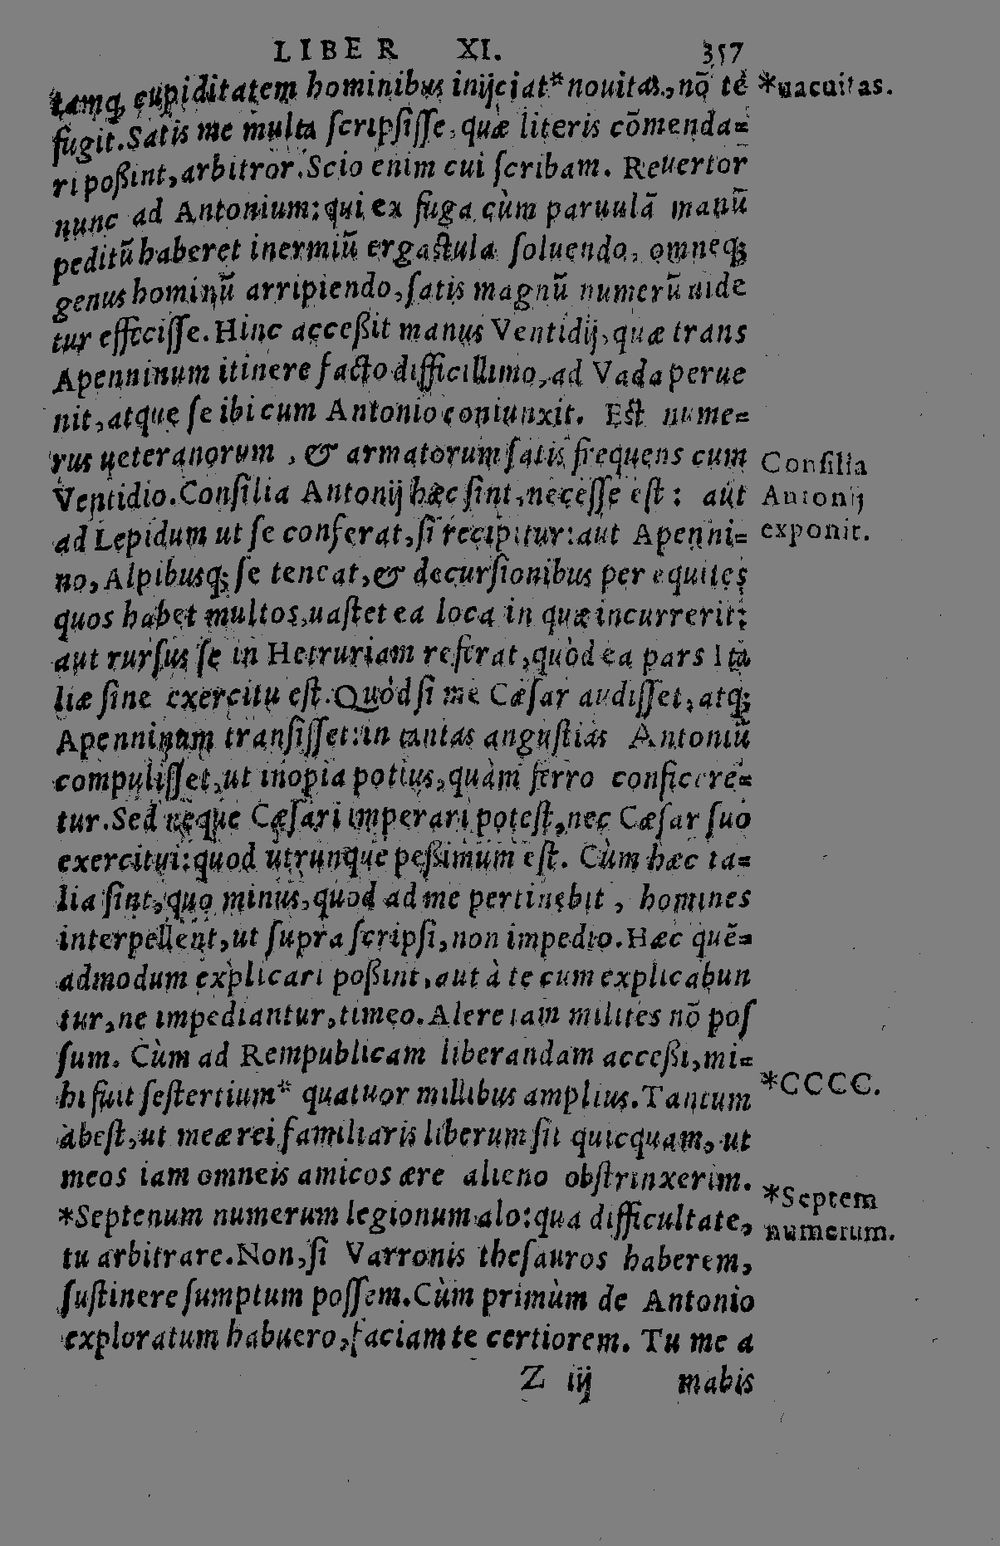 LIBER XI. 357
tamq; cupiditatem hominibus inijciat* nouitas, nõ te *uacuitas.
fugit. Satis me multa ſcripſiſſe, quæ literis cõmenda=
ri poßint, arbitror. Scio enim cui ſcribam. Reuertor
nunc ad Antonium: qui ex fuga cùm paruulã manũ
peditũ haberet inermiũ ergaſtula ſoluendo, omneq;
genus hominũ arripiendo, ſatis magnũ numerũ uide
tur effeciſſe. Hinc acceßit manus Ventidij, quæ trans
Apenninum itinere facto difficillimo, ad Vada perue
nit, atque ſe ibi cum Antonio coniunxit. Eſt nume=
rus ueteranorum, & armatorum ſatis frequens cum
Ventidio. Conſilia Antonij hæc ſint, neceſſe eſt: aut
ad Lepidum ut ſe conferat, ſi recipitur: aut Apenni=
Conſilia
Antonij
exponit.
no, Alpibusq; ſe teneat, & decurſionibus per equites
quos habet multos, uaſtet ea loca in quæ incurrerit:
aut rurſus ſe in Hetruriam referat, quòd ea pars Ita
liæ ſine exercitu eſt. Quòd ſi me Cæſar audiſſet, atq;
Apenninum tranſiſſet: in tantas anguſtias Antoniũ
compuliſſet, ut inopia potius, quàm ferro conficere=
tur. Sed neque Cæſari imperari poteſt, nec Cæſar ſuo
exercitui: quod utrunque peßimum eſt. Cùm hæc ta=
lia ſint, quo minus, quod ad me pertinebit, homines
interpellent, ut ſupra ſcripſi, non impedio. Hæc quẽ=
admodum explicari poßint, aut à te cum explicabun
tur, ne impediantur, timeo. Alere iam milites nõ poſ
ſum. Cùm ad Rempublicam liberandam acceßi, mi=
hi fuit ſeſtertium* quatuor millibus amplius. Tantum *CCCC.
abeſt, ut meæ rei familiaris liberum ſit quicquam, ut
meos iam omneis amicos ære alieno obſtrinxerim.
*Septenum numerum legionum alo: qua difficultate,
*Septem
numerum.
tu arbitrare. Non, ſi Varronis theſauros haberem,
ſuſtinere ſumptum poſſem. Cùm primùm de Antonio
exploratum habuero, faciam te certiorem. Tu me a
Z iij mabis